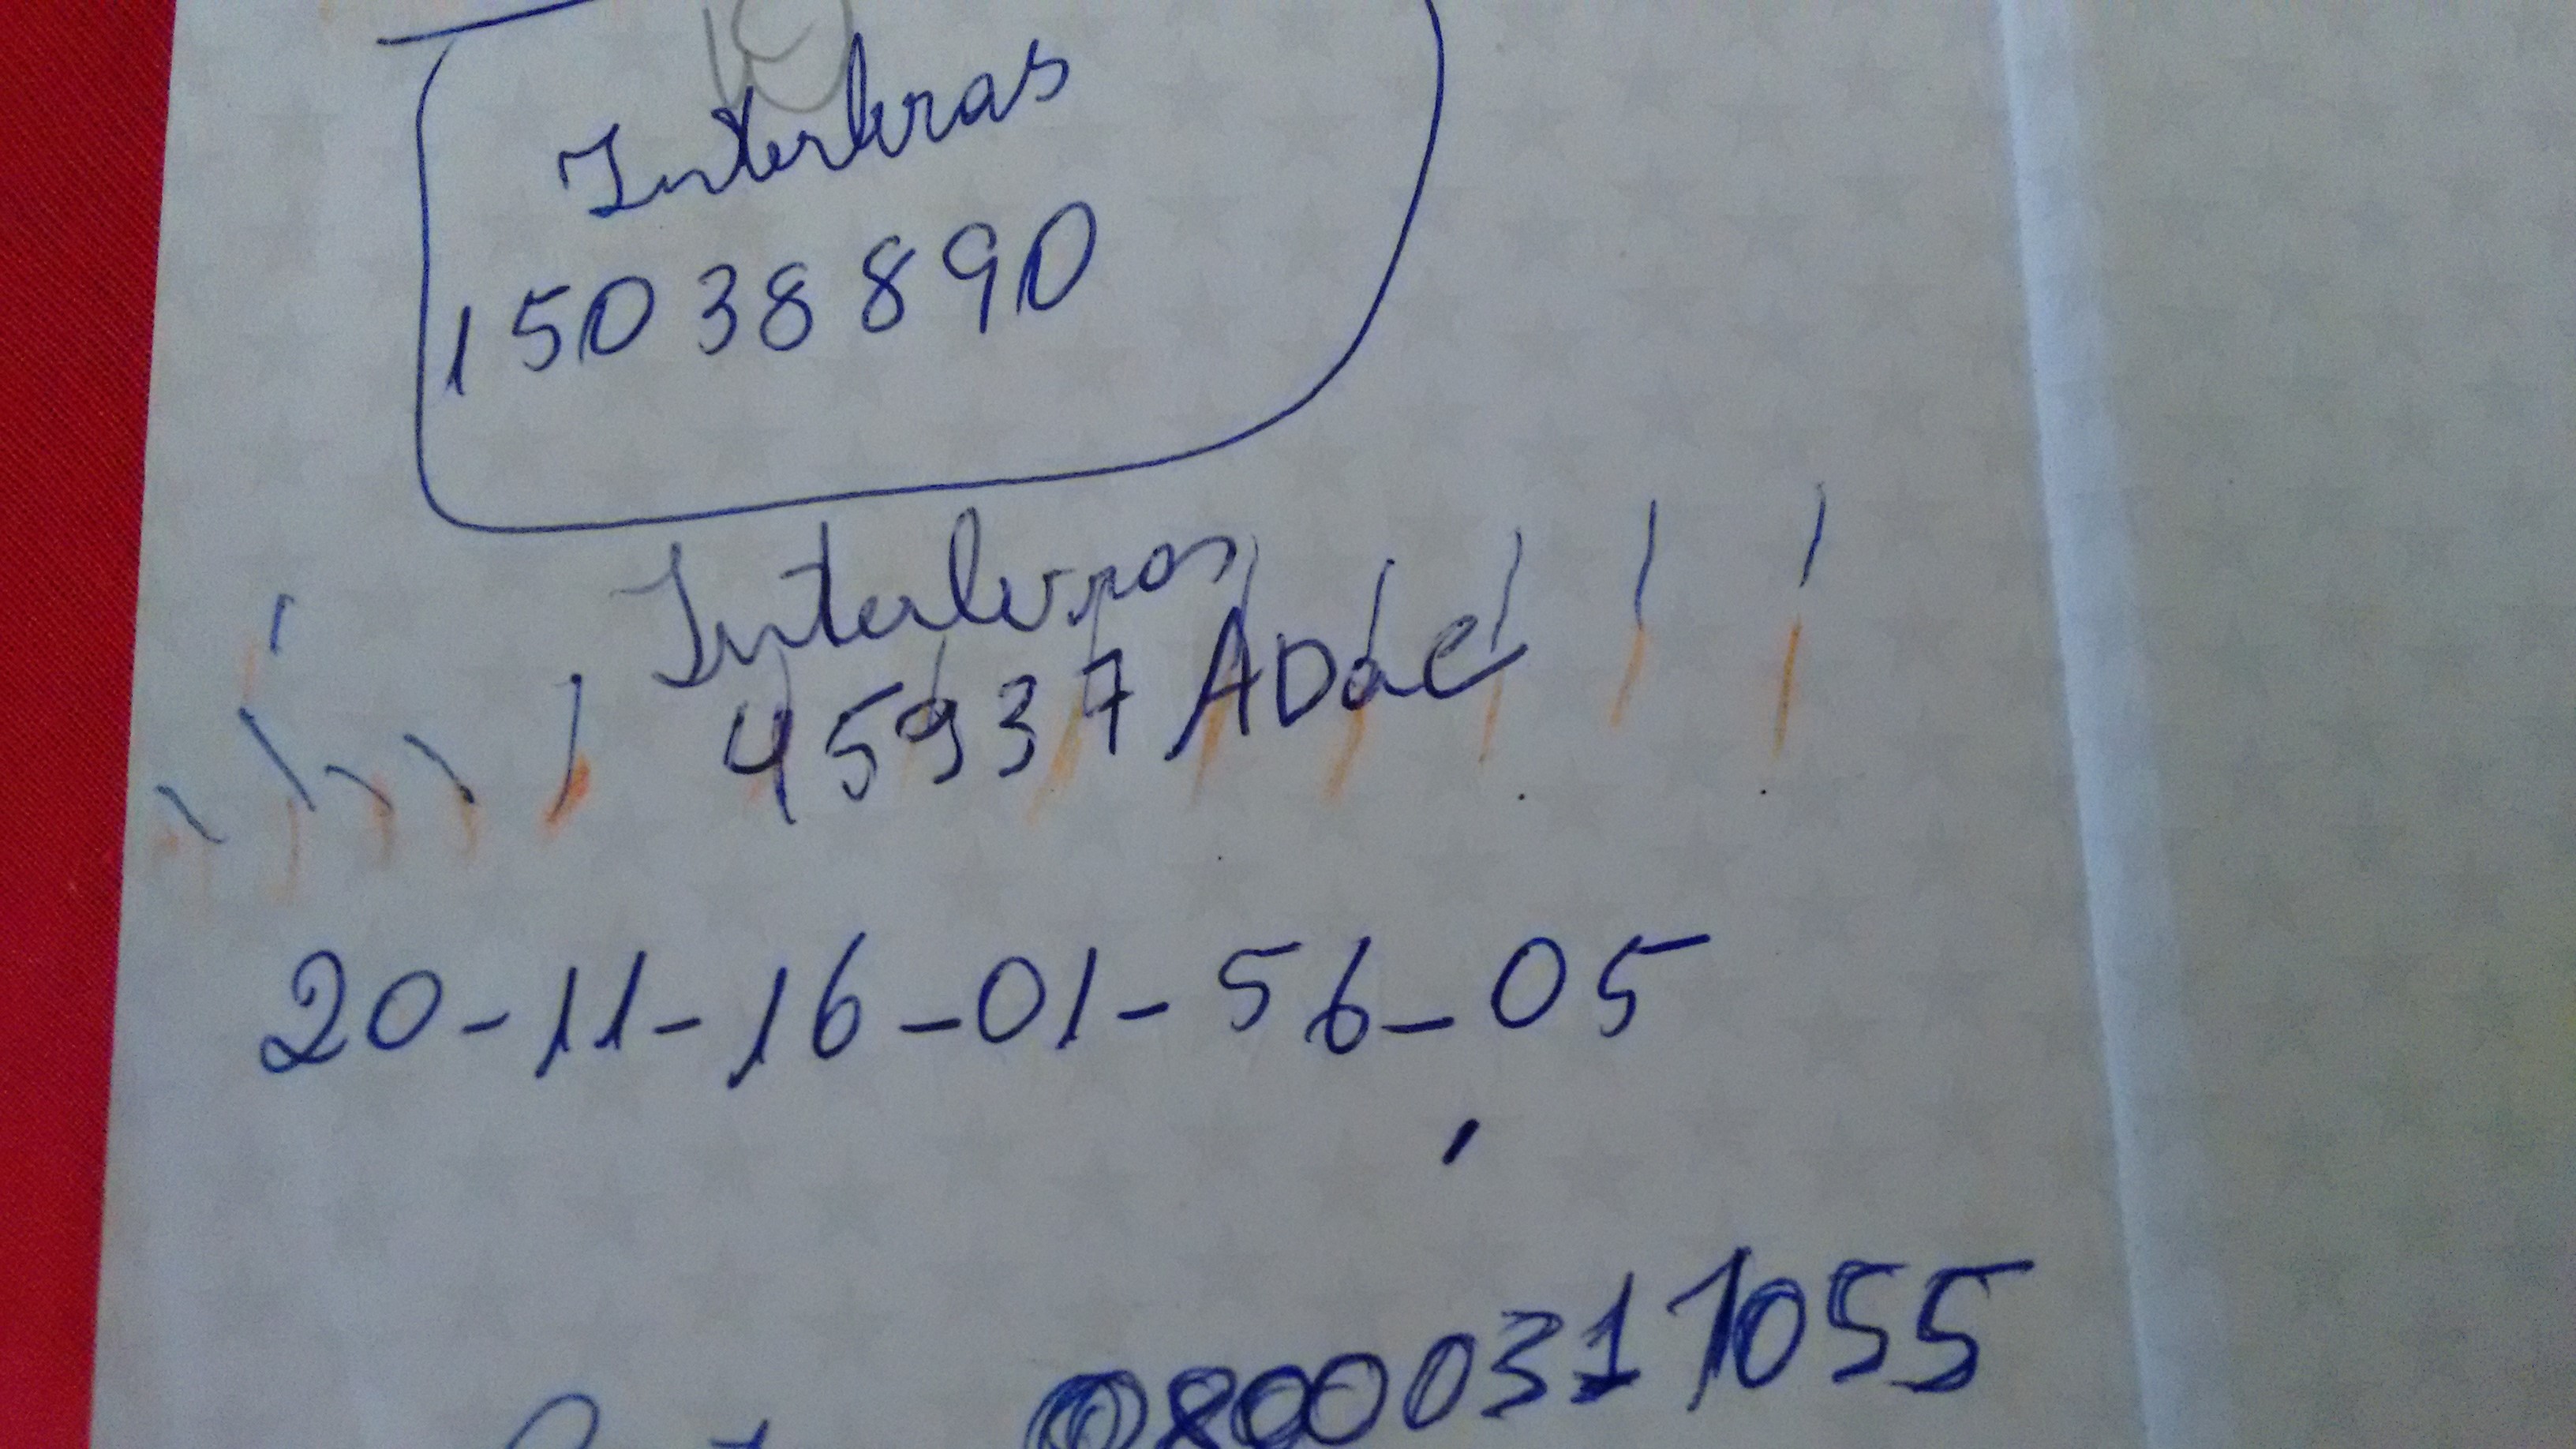 Interbras
15038890
Interbras
45937ADaC
20-11-16-01-56-05
08000311055